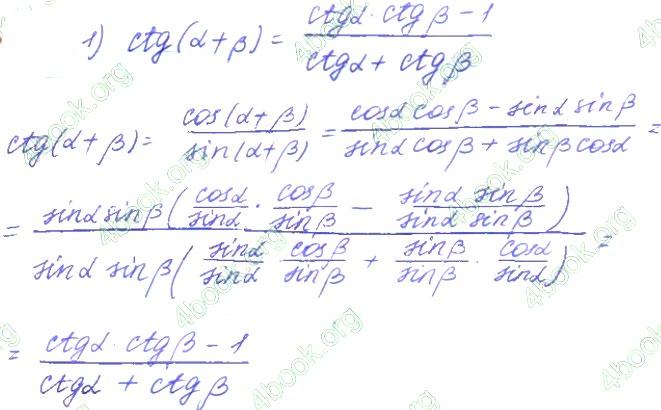 1) ctg(α+β) = (ctgα · ctgβ − 1)/(ctgα + ctgβ)
ctg(α+β) = cos(α+β)/sin(α+β) = (cosα cosβ − sinα sinβ)/(sinα cosβ + sinβ cosα) =
= (sinα sinβ (cosα/sinα · cosβ/sinβ − sinα sinβ/sinα sinβ))/(sinα sinβ (sinα/sinα · cosβ/sinβ + sinβ/sinβ · cosα/sinα)) =
= (ctgα · ctgβ − 1)/(ctgα + ctgβ)
4book.org
4book.org
4book.org
4book.org
4book.org
4book.org